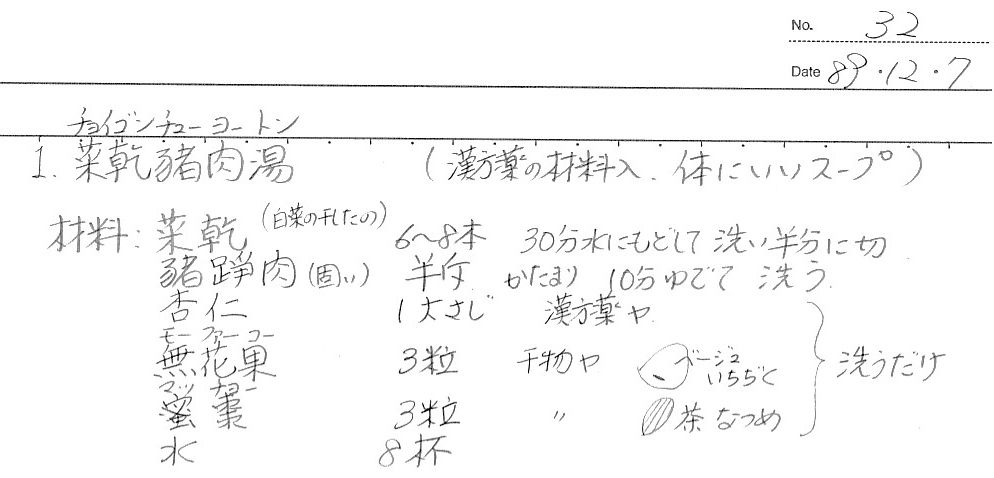 No. 32
Date 89・12・7
チョイゴンチューヨートン
1. 菜乾豬肉湯 (漢方薬の材料入、体にいいスープ)
材料: 菜乾 (白菜の干したの) 6〜8本 30分水にもどして洗い半分に切
豬踭肉(固い) 半斤 かたまり 10分ゆでて洗う
杏仁 1大さじ 漢方薬ヤ
モーファーコー
無花果 3粒 干物ヤ ベージュ いちぢく 洗うだけ
蜜棗 3粒 〃 茶なつめ
水 8杯